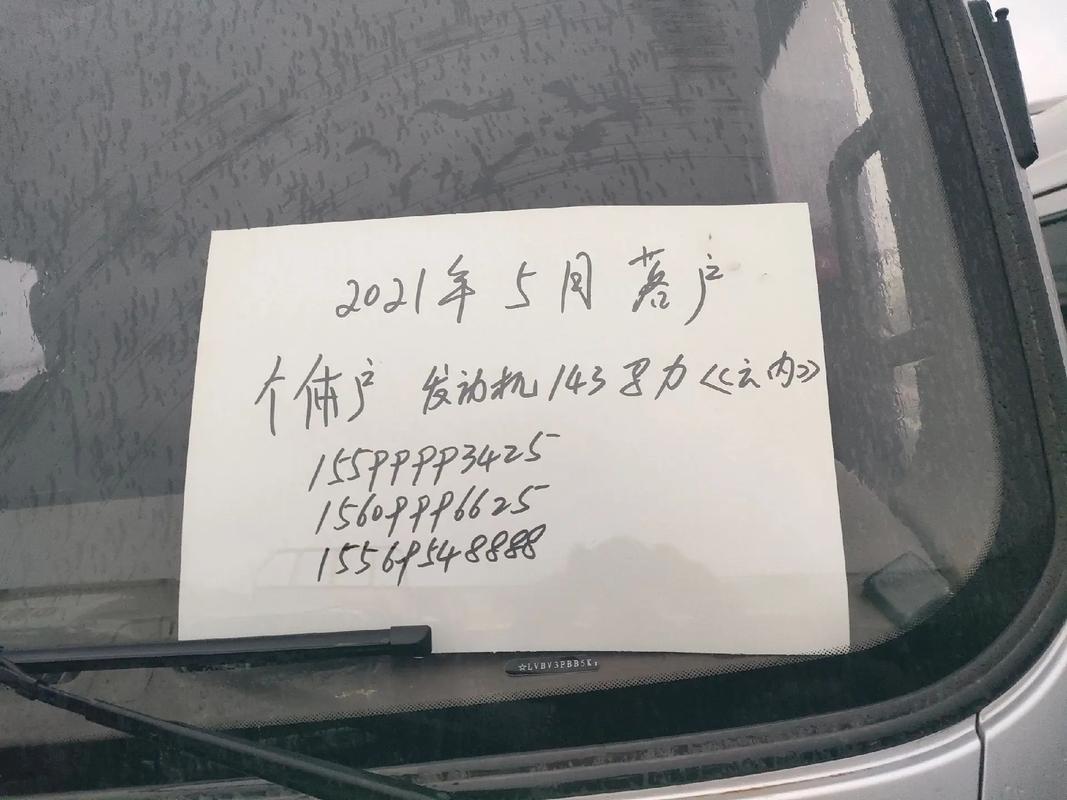 2021年 5月 落户
个体户 发动机143马力《云内》
15599993425
15609996625
15569548888
☆LVBV3PBB5K